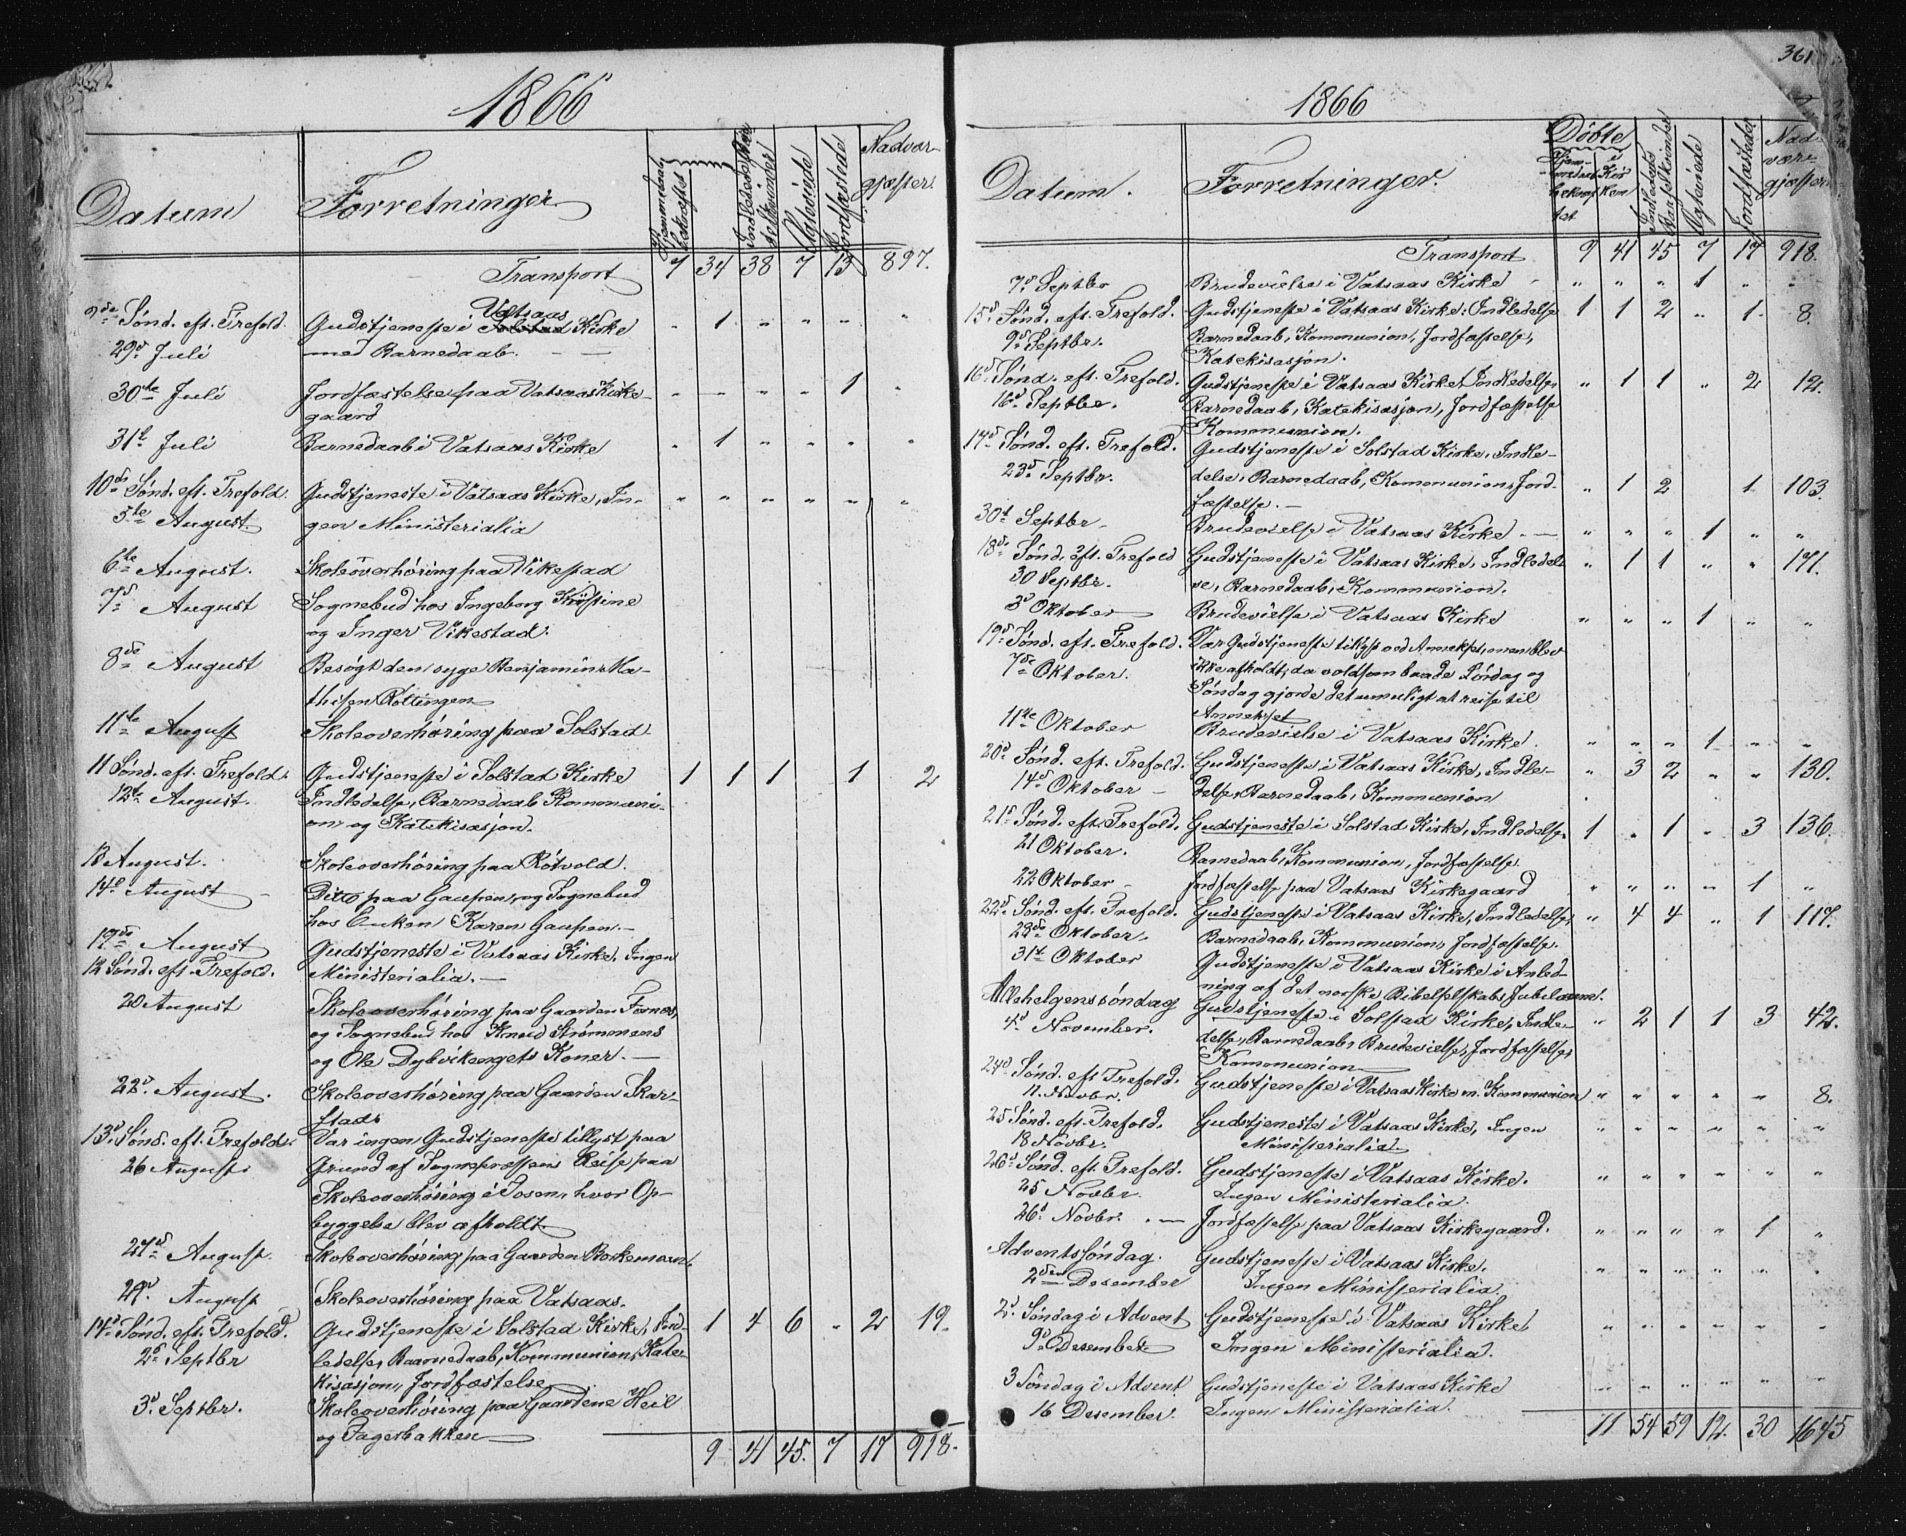 1866
Datum
Forretninger
Hjemmedøbte bekræftet
Indledede
Vatviede
Jordfæstede
Nadvergjæster.
Transport 7 34 38 7 13 897.
9de Sønd. eft. Trefold. Gudstjeneste i Vatsaas Kirke " 1 " " " "
29d Juli med Barnedaab.
30te Juli Jordfæstelse paa Vatsaas Kirke- " " " " 1 "
gaard
31te Juli Barnedaab i Vatsaas Kirke " 1 " " " "
10de Sønd. eft. Trefold. Gudstjeneste i Vatsaas Kirke, In- " " " " " "
5te August. gen Ministerialia
6te August. Skoleoverhøring paa Vikestad
7d August Sognebud hos Ingeborg Kristine
og Inger Vikestad.
8de August Besøgt den syge Benjamin Ma-
thisen Rottingen
11te August Skoleoverhøring paa Solstad
11 Sønd. eft. Trefold. Gudstjeneste i Solstad Kirke 1 1 1 1 2
12te August. Indledelse, Barnedaab Kommuni-
on og Katekisasjon.
13 August. Skoleoverhøring paa Rötvold.
14d August Ditto paa Gaupen, og Sognebud
hos Enken Karen Gaupen.
19de August Gudstjeneste i Vatsaas Kirke, Ingen
12 Sønd. eft. Trefold. Ministerialia.
20 August Skoleoverhøring paa Gaarden Fornes,
og Sognebud hos Knud Strömmens
og Ole Dybvikengets Koner.
22d August. Skoleoverhøring paa Gaarden Skar-
stad
13d Sønd. eft. Trefold. Var ingen Gudstjeneste tillyst paa
26 August Grund af Sognepræstens Reise paa
Skoleoverhøring i Fosen, hvor Op-
byggelse blev afholdt.
27d August. Skoleoverhøring paa Gaarden
29d August Skoleoverhøring paa Vatsaas.
14d Sønd. eft. Trefold. Gudstjeneste i Solstad Kirke, Ind- 1 4 6 " 2 19.
2d Septbr ledelse, Baarnedaab, Kommunion, Kate-
kisasjon, Jordfæstelse
3d Septbr. Skoleoverhøring paa Gaardene Heil
og Fagerbakken
9 41 45. 7 17 918.
361
1866
Datum.
Forretninger.
Døbte
Hjemmedøbt bekræftet
i Kirken
Indledede
Vatviede
Jordfæstede
Nadvergjæster
Transport 9 41 45 7 17 918.
7d Septbr Brudevielse i Vatsaas Kirke " " " 1 " "
15d Sønd. eft. Trefold. Gudstjeneste i Vatsaas Kirke. Indledelse 1 1 2 " 1. 8.
9d Septbr. Barnedaab, Kommunion, Jordfæstelse,
Katekisasjon.
16d Sønd. eft. Trefold. Gudstjeneste i Vatsaas Kirke, Indledelse, " 1 1 " 2 12.
16d Septbr. Barnedaab, Katekisasjon, Jordfæstelse
Kommunion.
17d Sønd. eft. Trefold. Gudstjeneste i Solstad Kirke. Indle-
23d Septbr. delse, Barnedaab, Kommunion, Jord- " 1 2 1 103.
fæstelse.
30t Septbr Brudevielse i Vatsaas Kirke " " " 1 " "
18de Sønd. eft. Trefold Gudstjeneste i Vatsaas Kirke, Indledel- " 1 1 " " 171.
30 Septbr. se, Barnedaab, Kommunion.
3d Oktober Brudevielse i Vatsaas Kirke " " " 1 " "
19d Sønd. eft. Trefold. Var Gudstjeneste tillyst ved Annekset, men blev
7de Oktober. ikke afholdt, da voldsom baade Lørdag og
Søndag gjorde det umuligt at reise til
Annekset
11te Oktober Brudevielse i Vatsaas Kirke " " " 1 " "
20d Sønd. eft. Trefold. Gudstjeneste i Vatsaas Kirke, Indle- " 3 2 " " 130.
14d Oktober delse, Barnedaab, Kommunion
21d Sønd. eft. Trefold. Gudstjeneste i Solstad Kirke, Indledelse, 1 " 1 " 3 136.
21 Oktober. Barnedaab, Kommunion, Jordfæstelse.
22 Oktober Jordfæstelse paa Vatsaas Kirkegaard " " " " 1 "
22d Sønd. eft. Trefold. Gudstjeneste i Vatsaas Kirke, Indledelse, " 4 4 " 1 117.
28de Oktober. Barnedaab, Kommunion, Jordfæstelse.
31te Oktober Gudstjeneste i Vatsaas Kirke i Anled-
ning af det norske Bibelselskabs Jubilæum.
Allehelgenssøndag Gudstjeneste i Solstad Kirke, Indle- " 2 1 1 3 42.
4d November. delse, Barnedaab, Brudevielse, Jordfæstelse,
Kommunion
24d Sønd. eft Trefold. Gudstjeneste i Vatsaas Kirke m. Kommunion " " " " " 8.
11. Novbr.
25 Sønd. eft. Trefold. Gudstjeneste i Vatsaas Kirke, Ingen " " " " " "
18 Novbr. Ministerialia.
26d Sønd. eft. Trefold. Gudstjeneste i Vatsaas Kirke. " " " " " "
25 Novbr. Ingen Ministerialia.
26d Novbr. Jordfæstelse paa Vatsaas Kirkegaard. " " " " 1 "
Adventssøndag. Gudstjeneste i Vatsaas Kirke. " " " " " "
2den Desember Ingen Ministerialia.
2d Søndag i Advent Gudstjeneste i Vatsaas Kirke, " " " " " "
9d Desember Ingen Ministerialia.
3 Søndag i Advent Gudstjeneste i Vatsaas Kirke " " " " " "
16 Desember. Ingen Ministerialia.
11 54 59 12. 30 1645